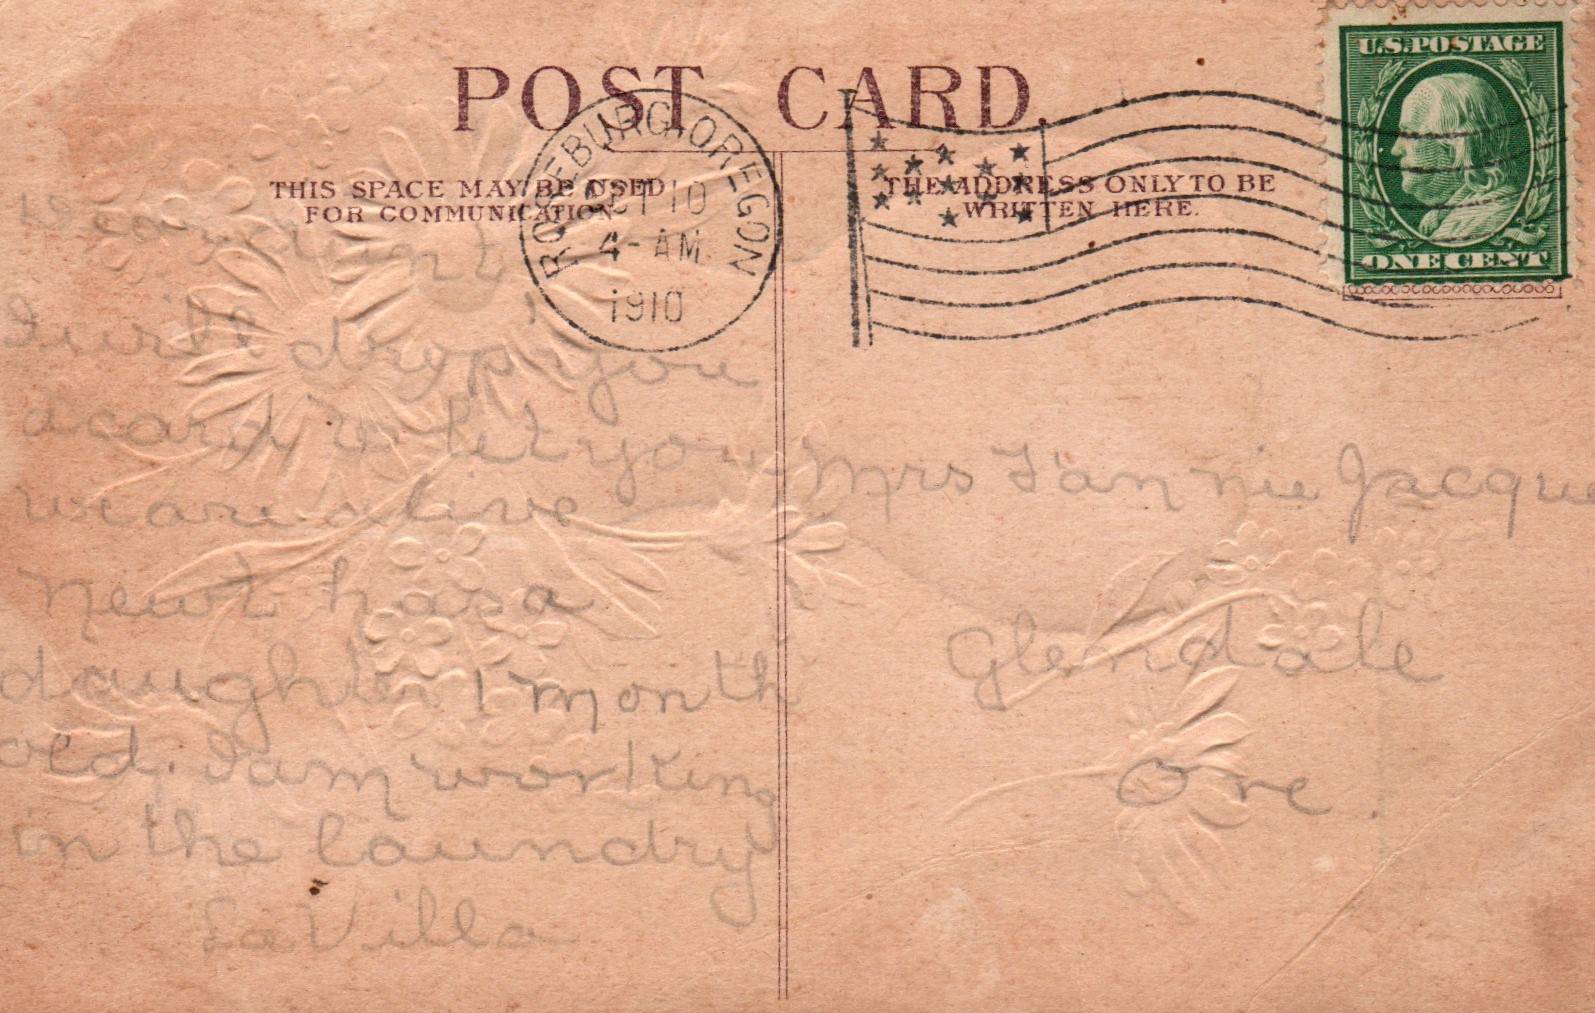 POST CARD.
THIS SPACE MAY BE USED
FOR COMMUNICATION
THE ADDRESS ONLY TO BE
WRITTEN HERE.
U.S. POSTAGE
ONE CENT
ROSEBURG, OREGON
OCT 10
4 - AM
1910
Dear aunt
I will drop you
a card to let you
we are alive
Newt has a
daughter 1 month
old. I am working
in the laundry
La Villa
Mrs Fannie Jacque
Glendale
Ore.